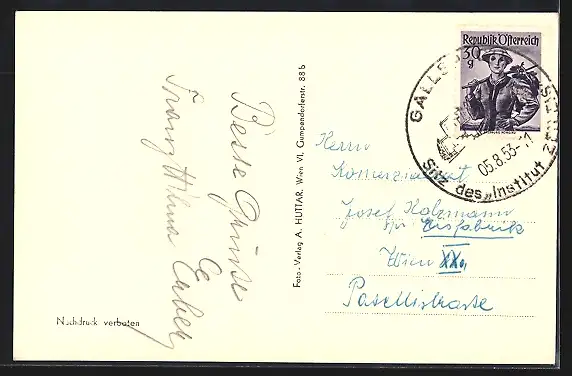 Beste Grüße
Franz
Nachdruck verboten
Foto - Verlag A. HUTTAR, Wien VI, Gumpendorferstr. 88 b
Republik Österreich
30
g
05.8.53-11
Sitz des „Institut
Herrn
Kommerzialrat
Josef Holzmann
Eisfabrik
Wien XX.,
Pasettistrasse